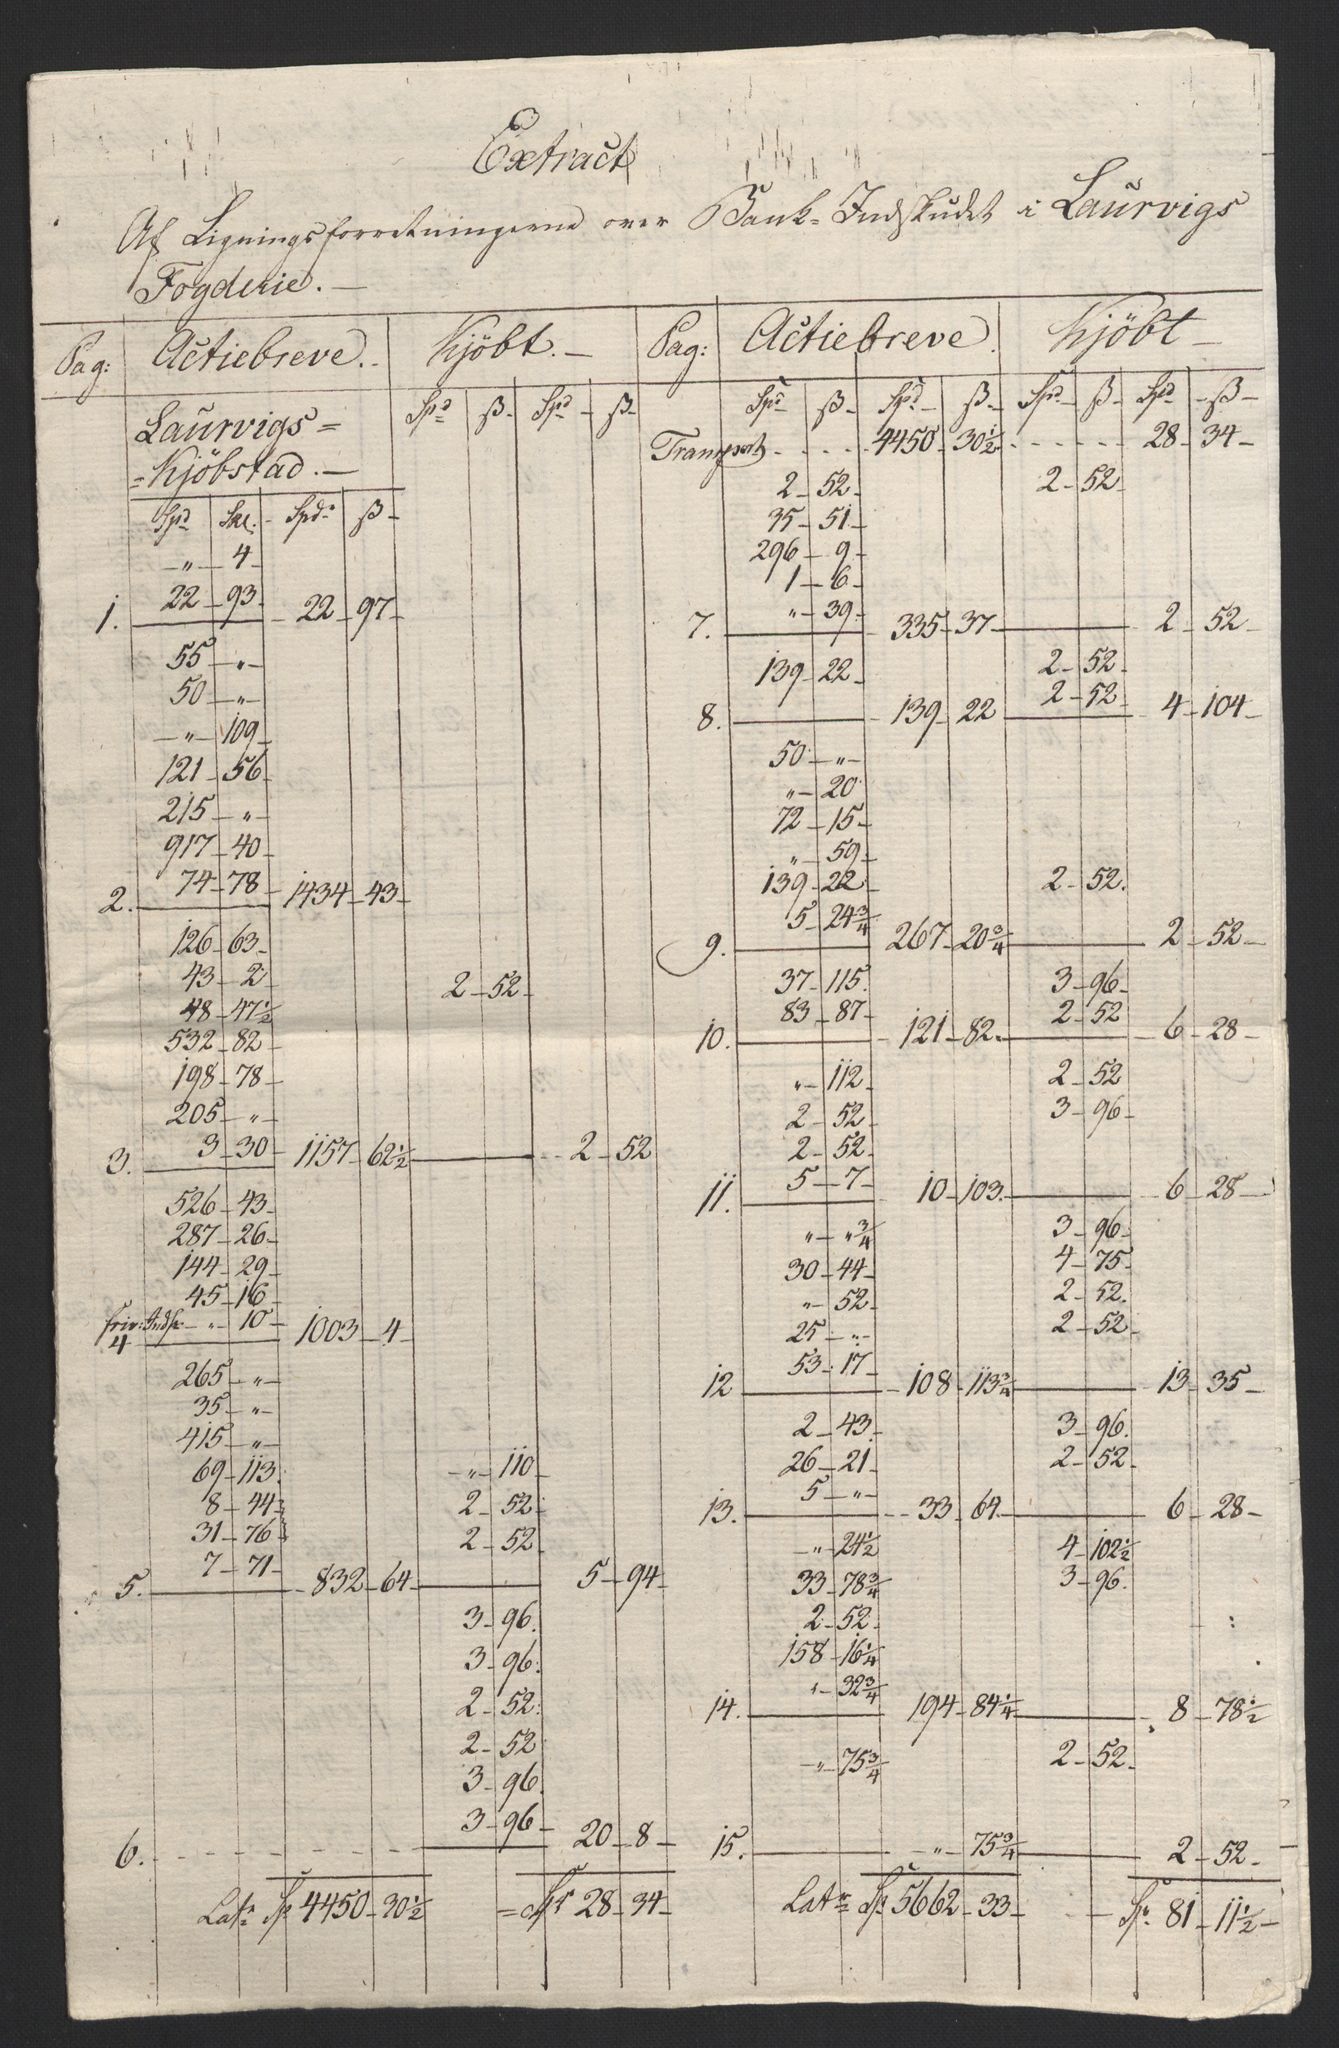 Extract
Af Ligningsforretningerne over Bank-Indskudet i Laurvigs
Fogderie. —
Pag: Actiebreve. Kjöbt. — Pag: Actiebreve. Kjöbt —
Spd ß Spd ß Spd ß Spd ß Spd ß Spd ß
Laurvigs=
=Kjöbstad. —
Spd Skl. Spd: ß
„ 4
1. 22 93 22 97
55 „
50 „
„ 109
121 56
215 „
917 40
2. 74 78 1434 43
126 63
43 2 2 52
48 47½
532 82
198 78
205 „
3. 3 30 1157 62½ 2 52
526 43
287 26
144 29
45 16
Friv: Indsk „ 10
4 1003 4
265 „
35 „
415 „
69 113 „ 110
8 44 2 52
31 76 2 52
5. 7 71 832 64 5 94
3 96
3 96
2 52
2 52
3 96
3 96
6. 20 8
Lat: Sp 4450 30½ = Sp 28 34
Transport 4450 30½ 28 34
2 52 2 52
35 51
296 9
1 6
„ 39
7. 335 37 2 52
139 22 2 52
2 52
8. 139 22 4 104
50 „
„ 20
72 15
„ 59
139 22 2 52
5 24¾
9. 267 20¾ 2 52
37 115 3 96
83 87 2 52
10. 121 82 6 28
„ 112 2 52
2 52 3 96
2 52
5 7
11. 10 103 6 28
„ „¾ 3 96
30 44 4 75
„ 52 2 52
25 „ 2 52
53 17
12 108 113¾ 13 35
2 43 3 96
26 21 2 52
5 „
13. 33 64 6 28
„ 24½ 4 102½
33 78¾ 3 96
2 52
158 16¼
„ 32¾
14. 194 84¼ 8 78½
„ 75¾ 2 52
15. „ 75¾ 2 52
Lat: Sp 5662 33 Sp 81 11½